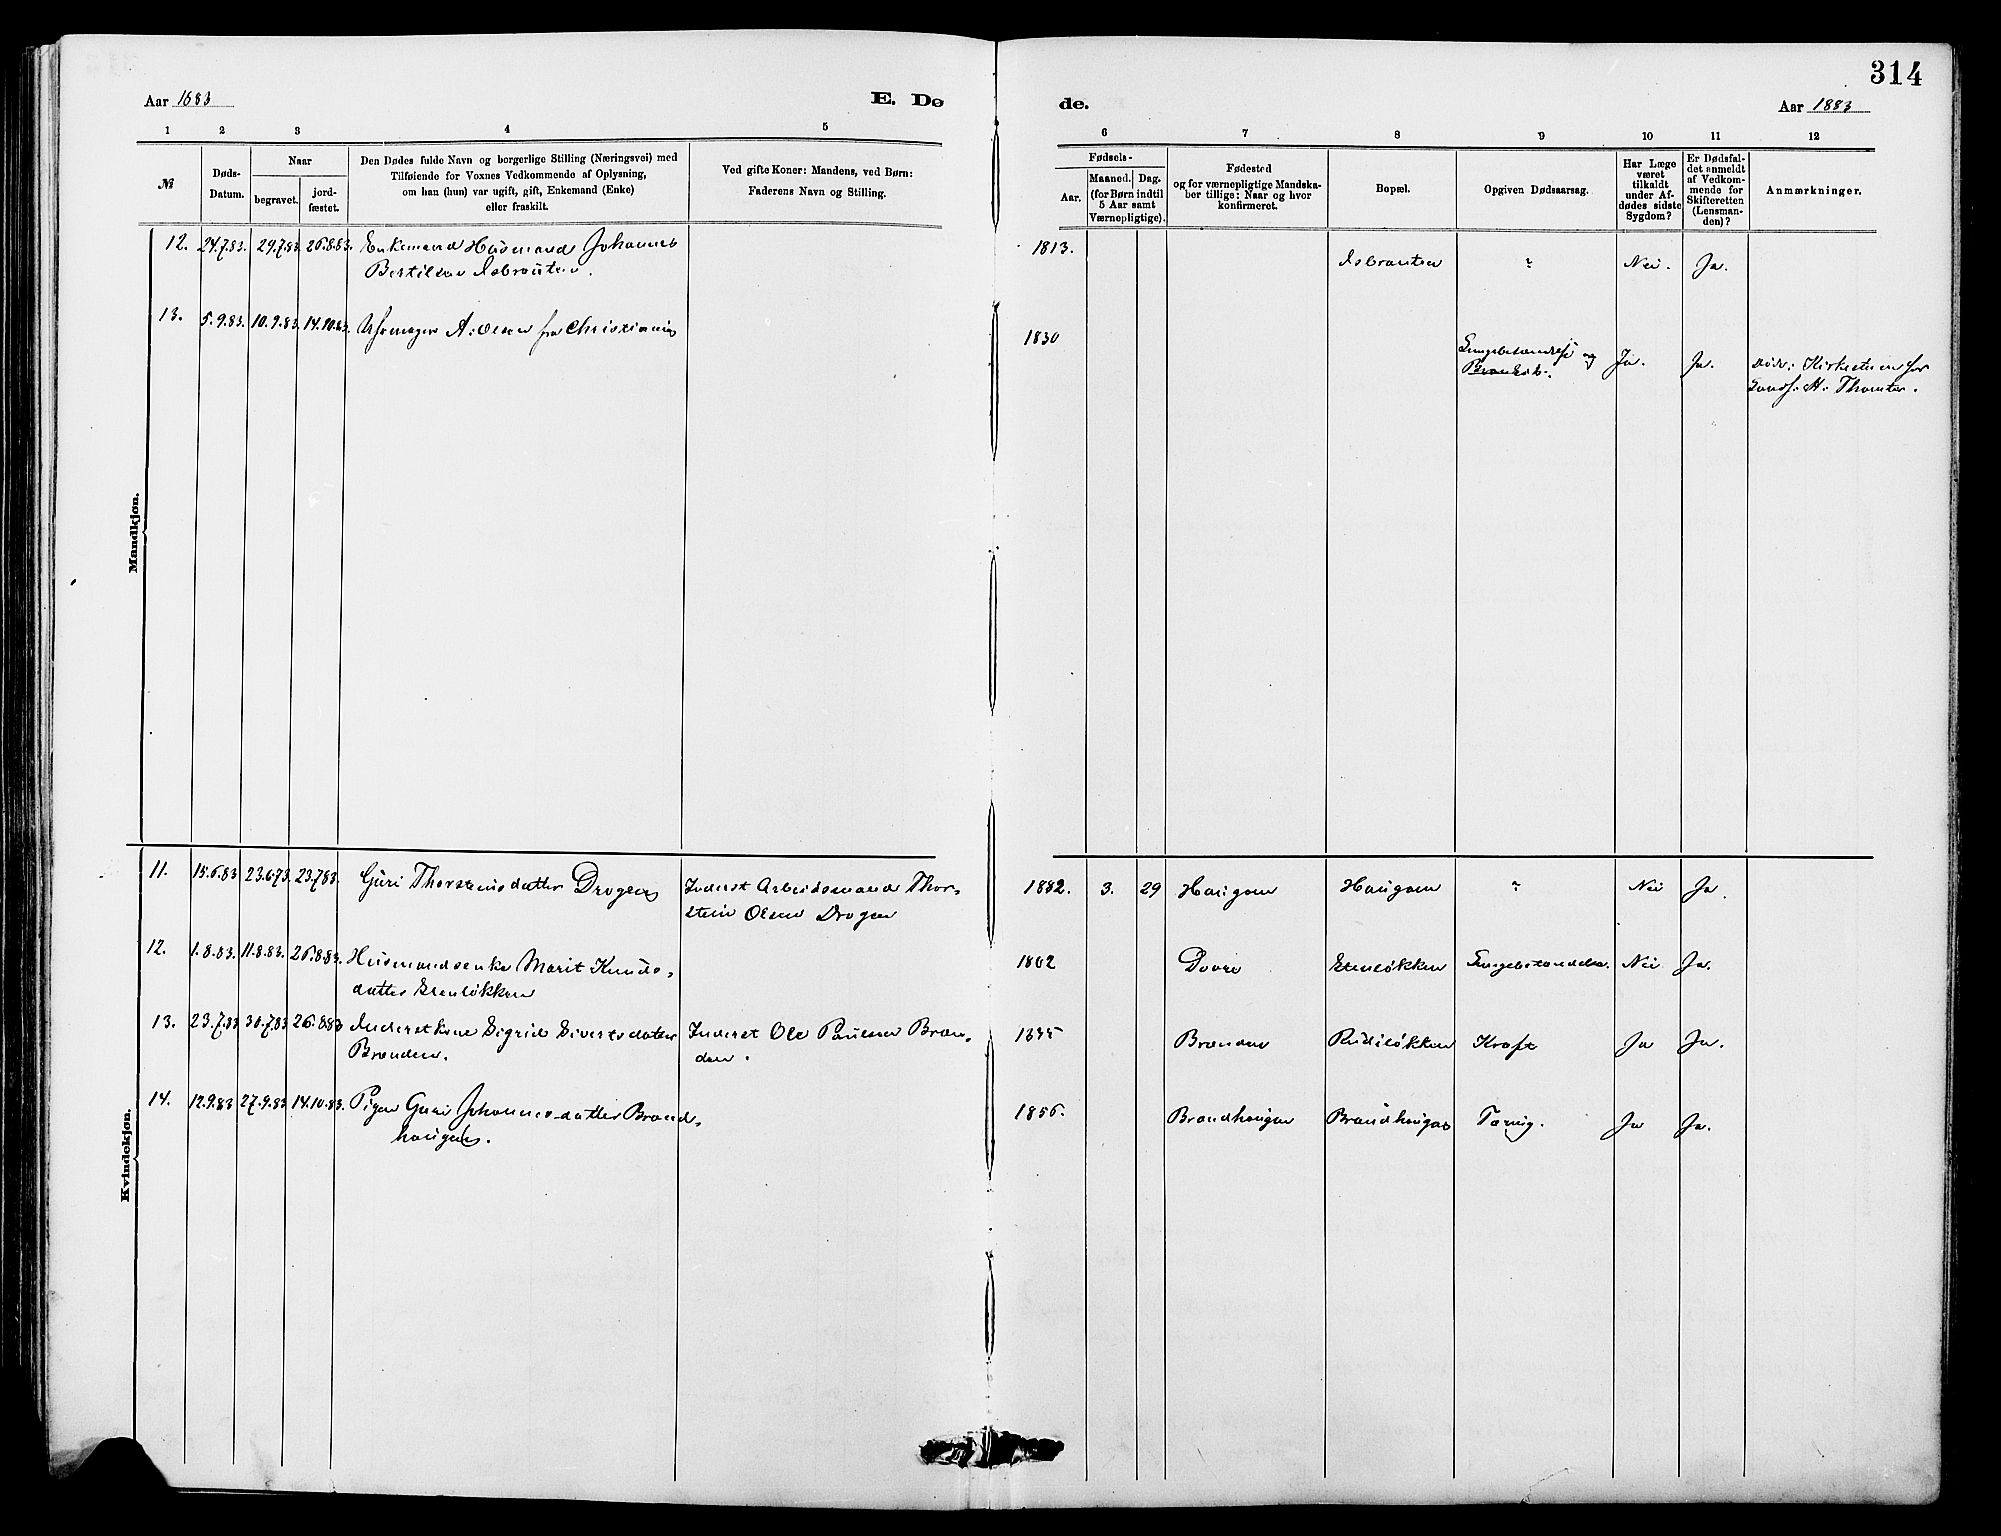 314
Aar 1883
E. Dø
de.
Aar 1883
1 2 3 4 5
6 7 8 9 10 11 12
№
Døds-
Datum.
Naar
begravet.
jord-
fæstet.
Den Dødes fulde Navn og borgerlige Stilling (Næringsvei) med
Tilføiende for Voxnes Vedkommende af Oplysning,
om han (hun) var ugift, gift, Enkemand (Enke)
eller fraskilt.
Ved gifte Koner: Mandens, ved Børn:
Faderens Navn og Stilling.
Fødsels-
Aar.
Maaned. Dag.
(for Børn indtil
5 Aar samt
Værnepligtige).
Fødested
og for værnepligtige Mandska-
ber tillige: Naar og hvor
konfirmeret.
Bopæl.
Opgiven Dødsaarsag.
Har Læge
været
tilkaldt
under Af-
dødes sidste
Sygdom?
Er Dødsfal-
det anmeldt
af Vedkom-
mende for
Skifteretten
(Lensman-
den)?
Anmærkninger.
Mandkjøn.
12. 24.7.83. 29.7.83. 26.8.83. Enkemand Husmand Johannes
Bertilsen Isbrauten.
1813. Isbrauten Nei. Ja.
13. 5.9.83. 10.9.83. 14.10.83. Uhrmager A. Olsen fra Christiania
1830
og Ja. Ja.
Kvindekjøn.
11. 15.6.83 23.6.73. 23.7.83. Guri Thorsteinsdatter Drogen
Inderst Arbeidsmand Thor-
stein Olsen Drogen
1882. 3. 29 Haugen Haugen Nei Ja.
12. 1.8.83. 11.8.83. 26.8.83. Husmandsenke Marit Knuds-
datter Stenløkken
1802 Dovre Stenløkken Nei Ja.
13. 23.7.83 30.7.83 26.8.83 Inderstkone Sigrid Sivertsdatter
Brænden.
Inderst Ole Paulsen Bræn-
den.
1845 Brænden Rudiløkken Kræft Ja Ja.
14. 12.9.83 27.9.83 14.10.83. Pigen Guri Johannesdatter Brænd-
haugen.
1856. Brændhaugen Brændhaugen Tæring. Ja Ja.